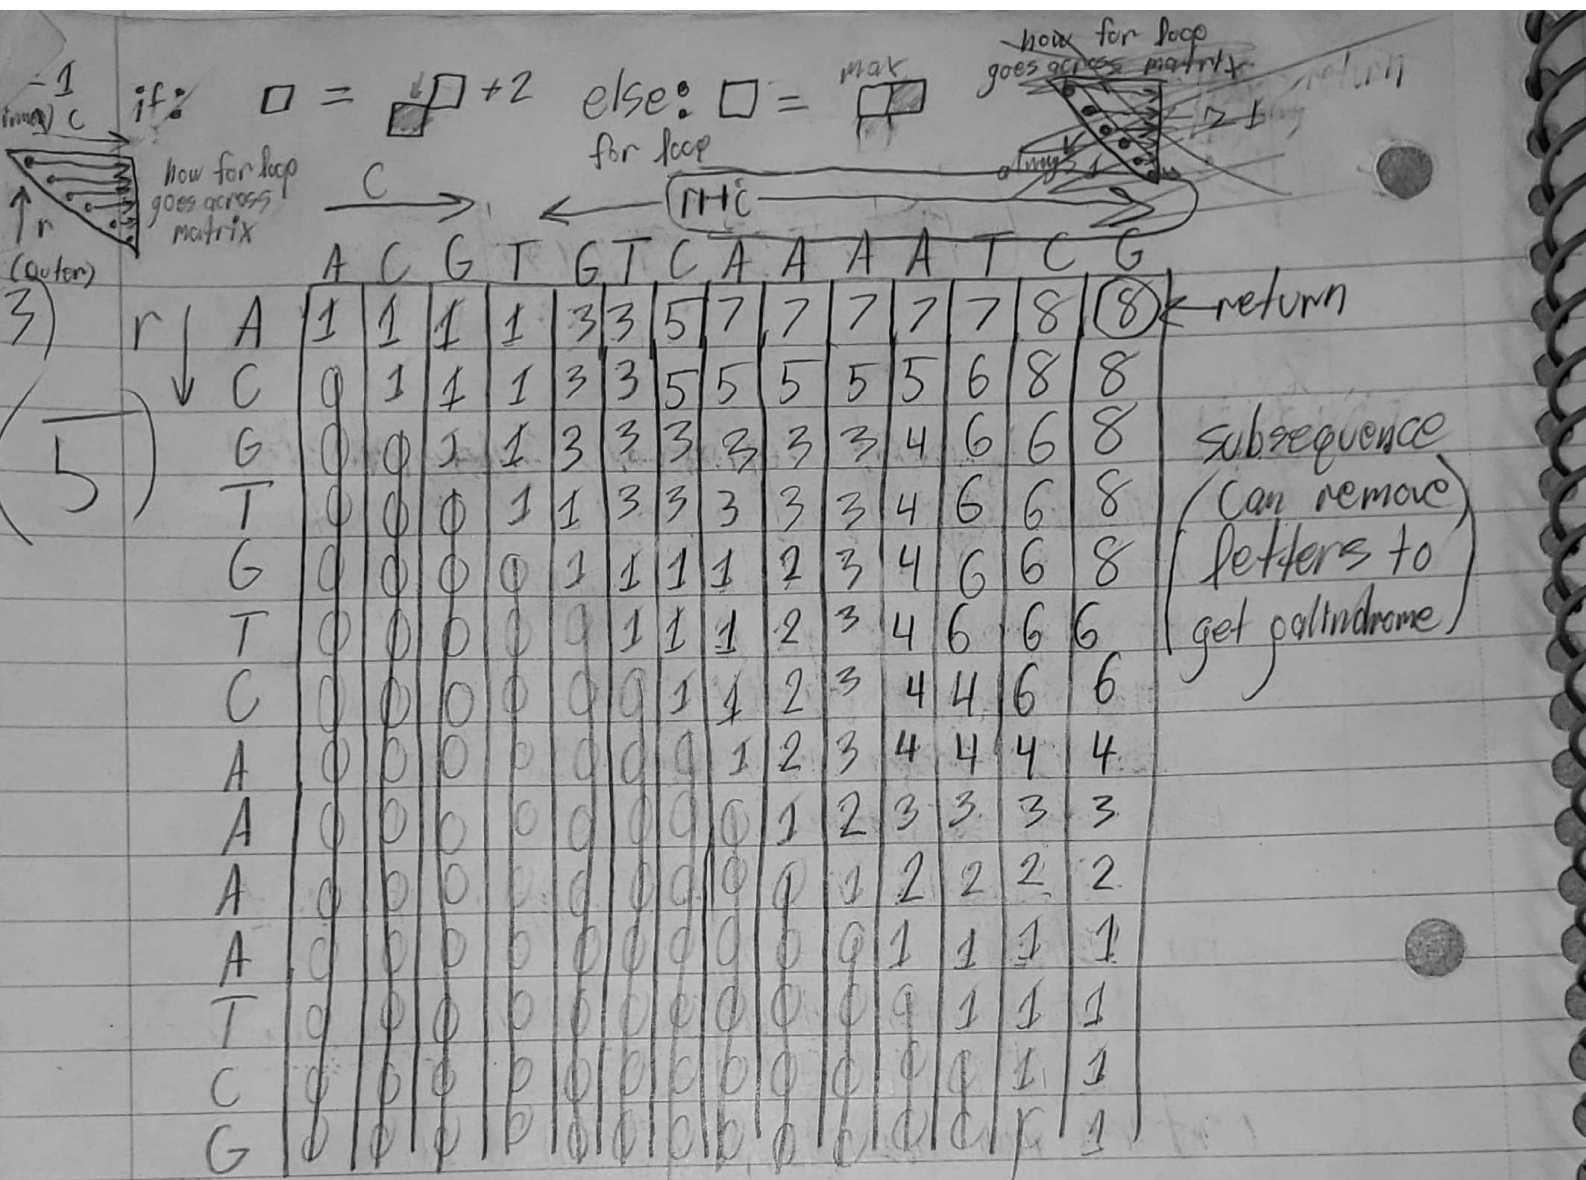 -1
if: □ = □ +2 else: □ = max
(inner) C
how for loop
goes across matrix
return
how for loop
goes across
matrix
for loop
C
r+c
always 1
> 1
r
(outer)
A C G T G T C A A A A T C G
3)
r A 1 1 1 1 3 3 5 7 7 7 7 7 8 8 ←return
C 0 1 1 1 3 3 5 5 5 5 5 6 8 8
5)
G 0 0 1 1 3 3 3 3 3 3 4 6 6 8
T 0 0 0 1 1 3 3 3 3 3 4 6 6 8
G 0 0 0 0 1 1 1 1 2 3 4 6 6 8
T 0 0 0 0 0 1 1 1 2 3 4 6 6 6
C 0 0 0 0 0 0 1 1 2 3 4 4 6 6
A 0 0 0 0 0 0 0 1 2 3 4 4 4 4
A 0 0 0 0 0 0 0 0 1 2 3 3 3 3
A 0 0 0 0 0 0 0 0 0 1 2 2 2 2
A 0 0 0 0 0 0 0 0 0 0 1 1 1 1
T 0 0 0 0 0 0 0 0 0 0 0 1 1 1
C 0 0 0 0 0 0 0 0 0 0 0 0 1 1
G 0 0 0 0 0 0 0 0 0 0 0 0 0 1
subsequence
(can remove
letters to
get palindrome)